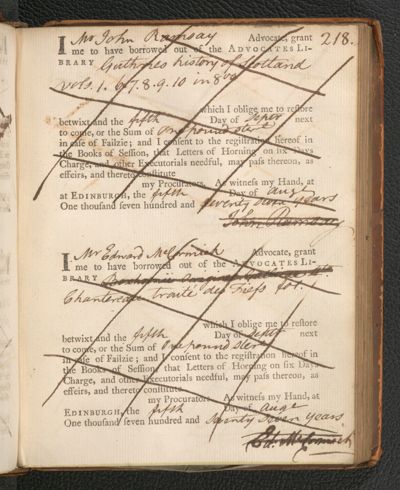 218.
I Mr John Ramsay Advocate, grant
me to have borrowed out of the ADVOCATES LI-
BRARY Guthries history of Scotland
vols. 1. 6. 7. 8. 9. 10 in 8vo
which I oblige me to restore
betwixt and the fifth Day of Septr next
to come, or the Sum of One pound sterl
in case of Failzie; and I consent to the registration hereof in
the Books of Session, that Letters of Horning on six Days
Charge, and other Executorials needful, may pass thereon, as
effeirs, and thereto constitute
my Procurators. As witness my Hand, at
at EDINBURGH, the fifth Day of Augt
One thousand seven hundred and seventy seven years
John Ramsay
I Mr Edward McCormick Advocate, grant
me to have borrowed out of the ADVOCATES LI-
BRARY
Chantereau traité des Fiefs fol. 1
which I oblige me to restore
betwixt and the fifth Day of Septr next
to come, or the Sum of One pound sterl
in case of Failzie; and I consent to the registration hereof in
the Books of Session, that Letters of Horning on six Days
Charge, and other Executorials needful, may pass thereon, as
effeirs, and thereto constitute
my Procurators As witness my Hand, at
EDINBURGH, the fifth Day of Augt
One thousand seven hundred and Seventy Seven years.
Ed. McCormick